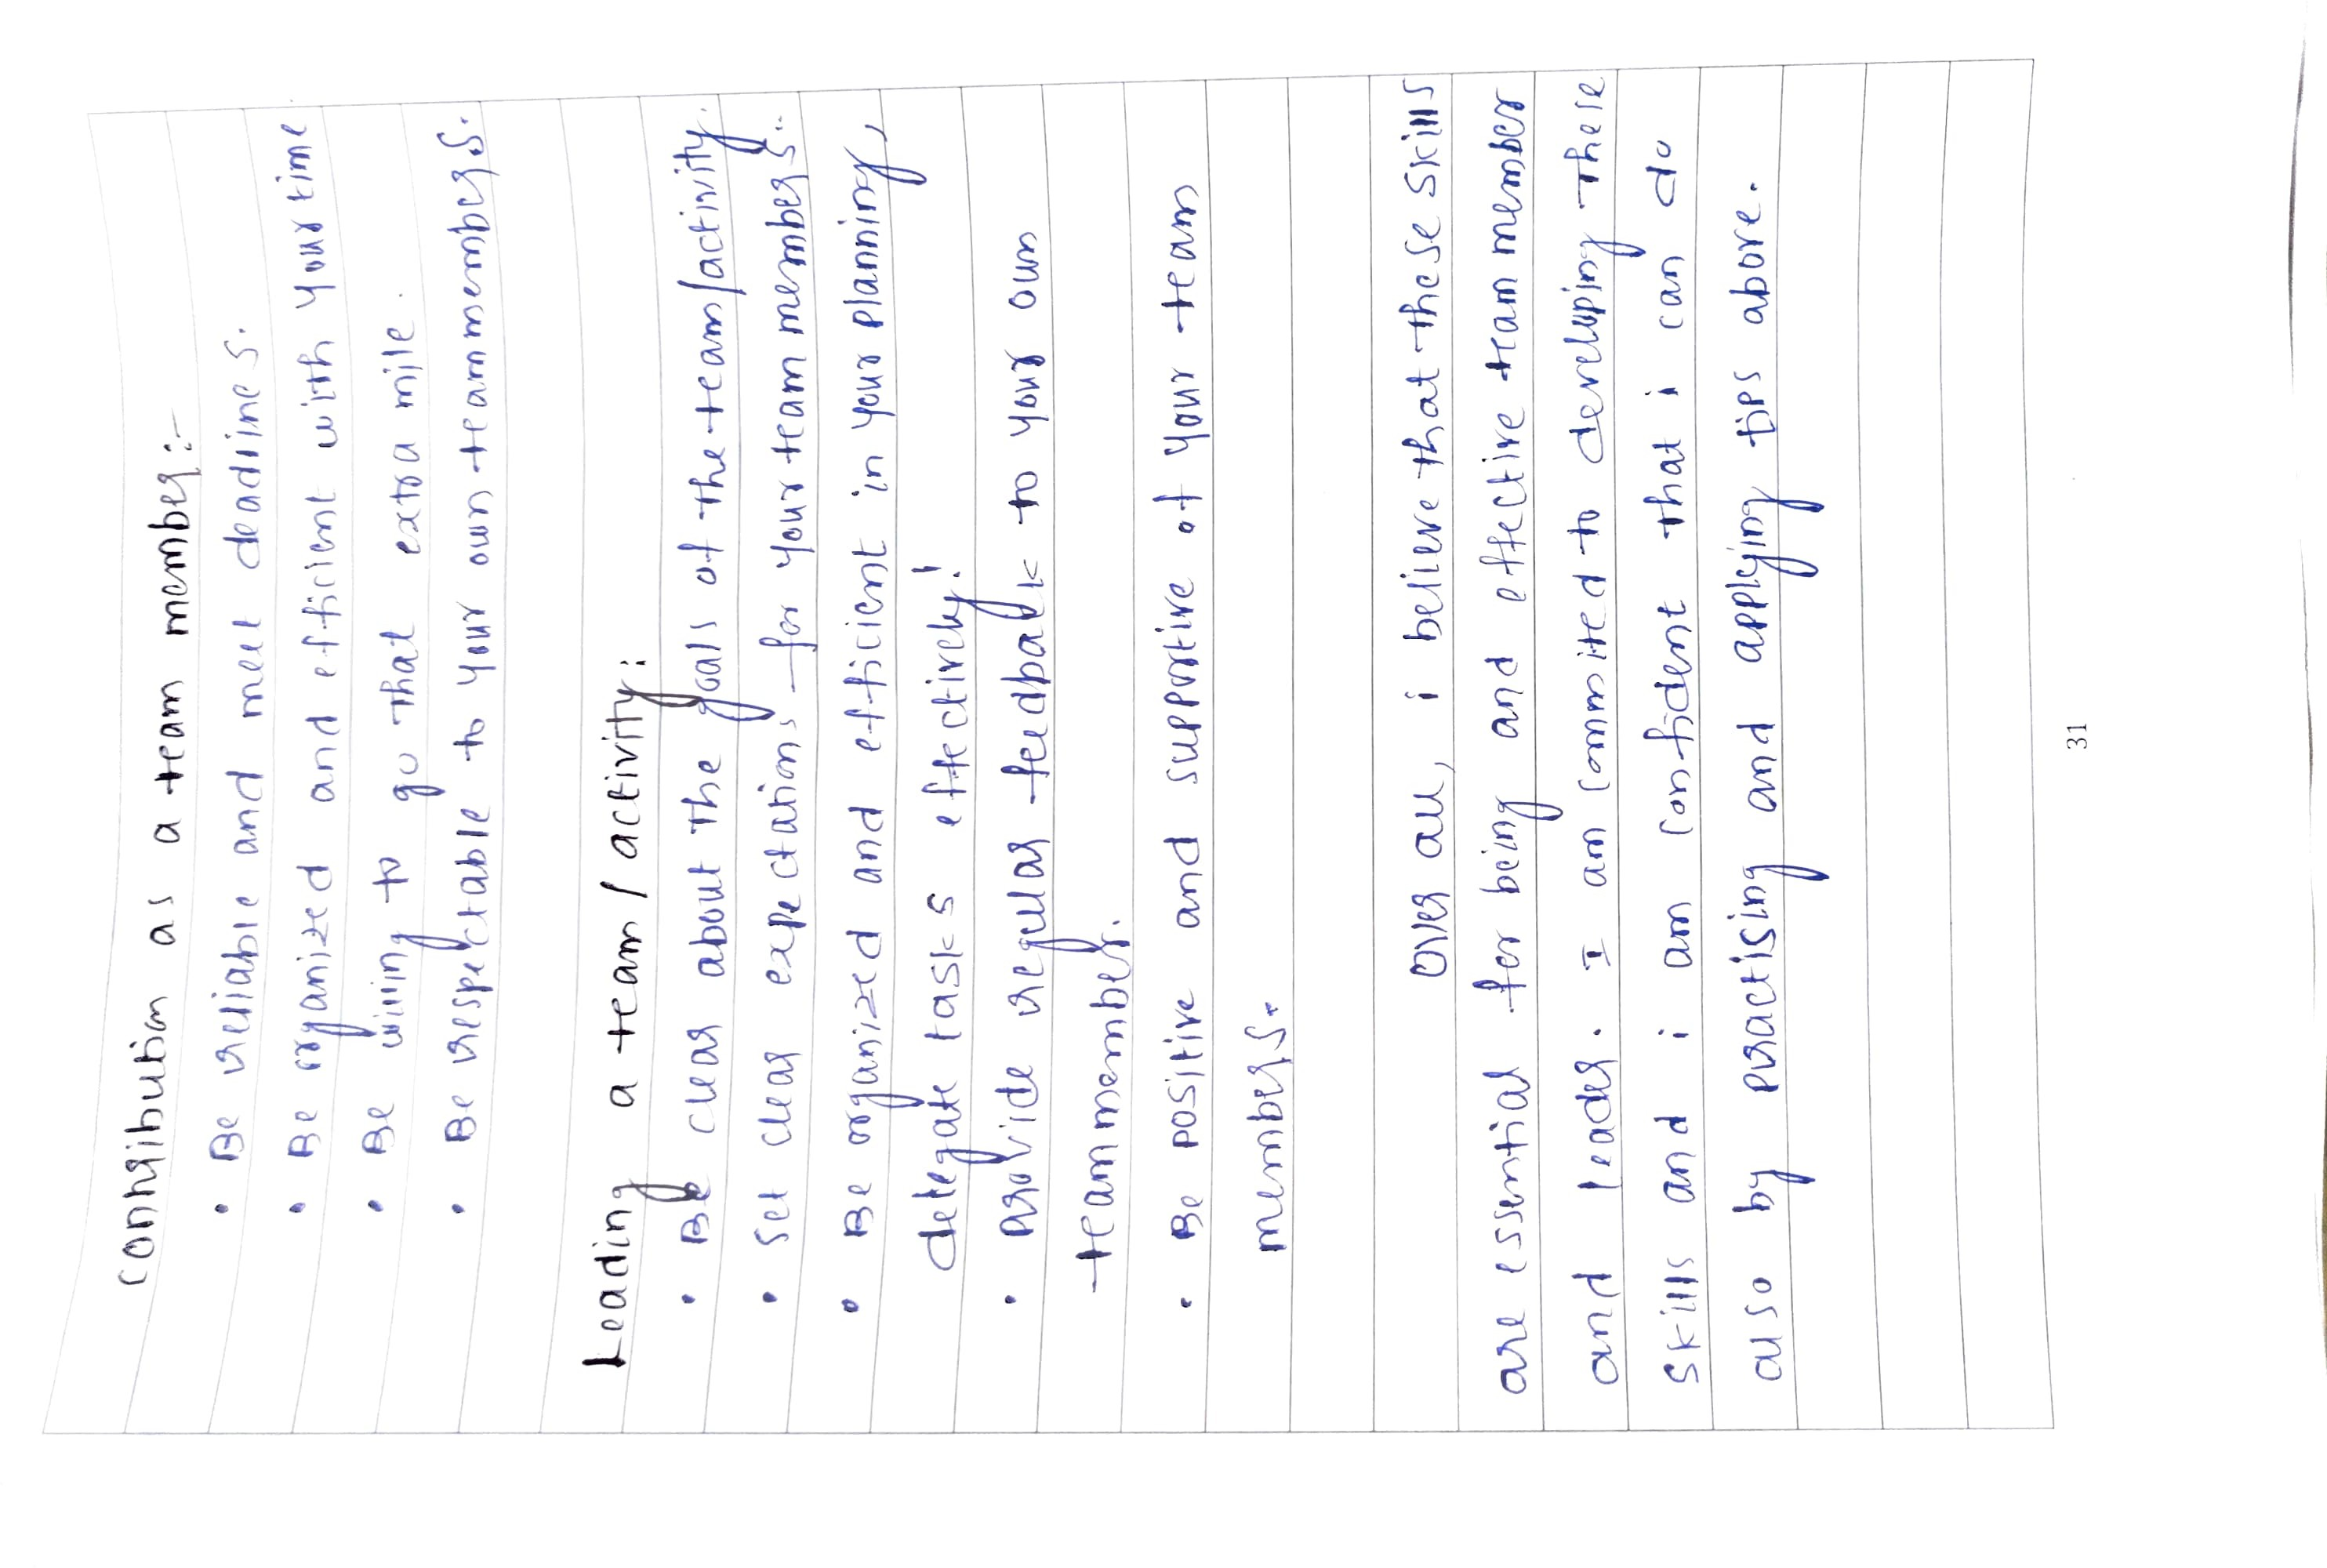 Contribution as a team member:-
• Be reliable and meet deadlines.
• Be organized and efficient with your time
• Be willing to go that extra mile.
• Be respectable to your own teammembers.
Leading a team/activity:
• Be clear about the goals of the team/activity.
• Set clear expectations for your team members.
• Be organized and efficient in your planning,
delegate tasks effectively!
• Provide regular feedback to your own
teammember.
• Be positive and supportive of your team
members.
Over all, i believe that these skills
are essential for being and effective team member
and leader. I am commited to developing these
skills and i am confident that i can do
also by practising and applying tips above.
31